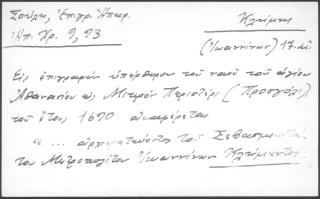 Σούλη, Ἐπιγρ. Ἠπειρ.
Ἠπ. Χρ. 9, 93
Κλήμης
(Ἰωαννίνων) 17. αἰ.
Εἰς ἐπιγραφὴν ὑπέρθυρον τοῦ ναοῦ τοῦ ἁγίου
Ἀθανασίου εἰς Μικρὸν Περιστέρι (Προσγόλι)
τοῦ ἔτους 1670 ἀναφέρεται
"... ἀρχιερατεύοντος τοῦ Σεβασμιωτά
του Μητροπολίτου Ἰωαννίνων Κλήμεντος.